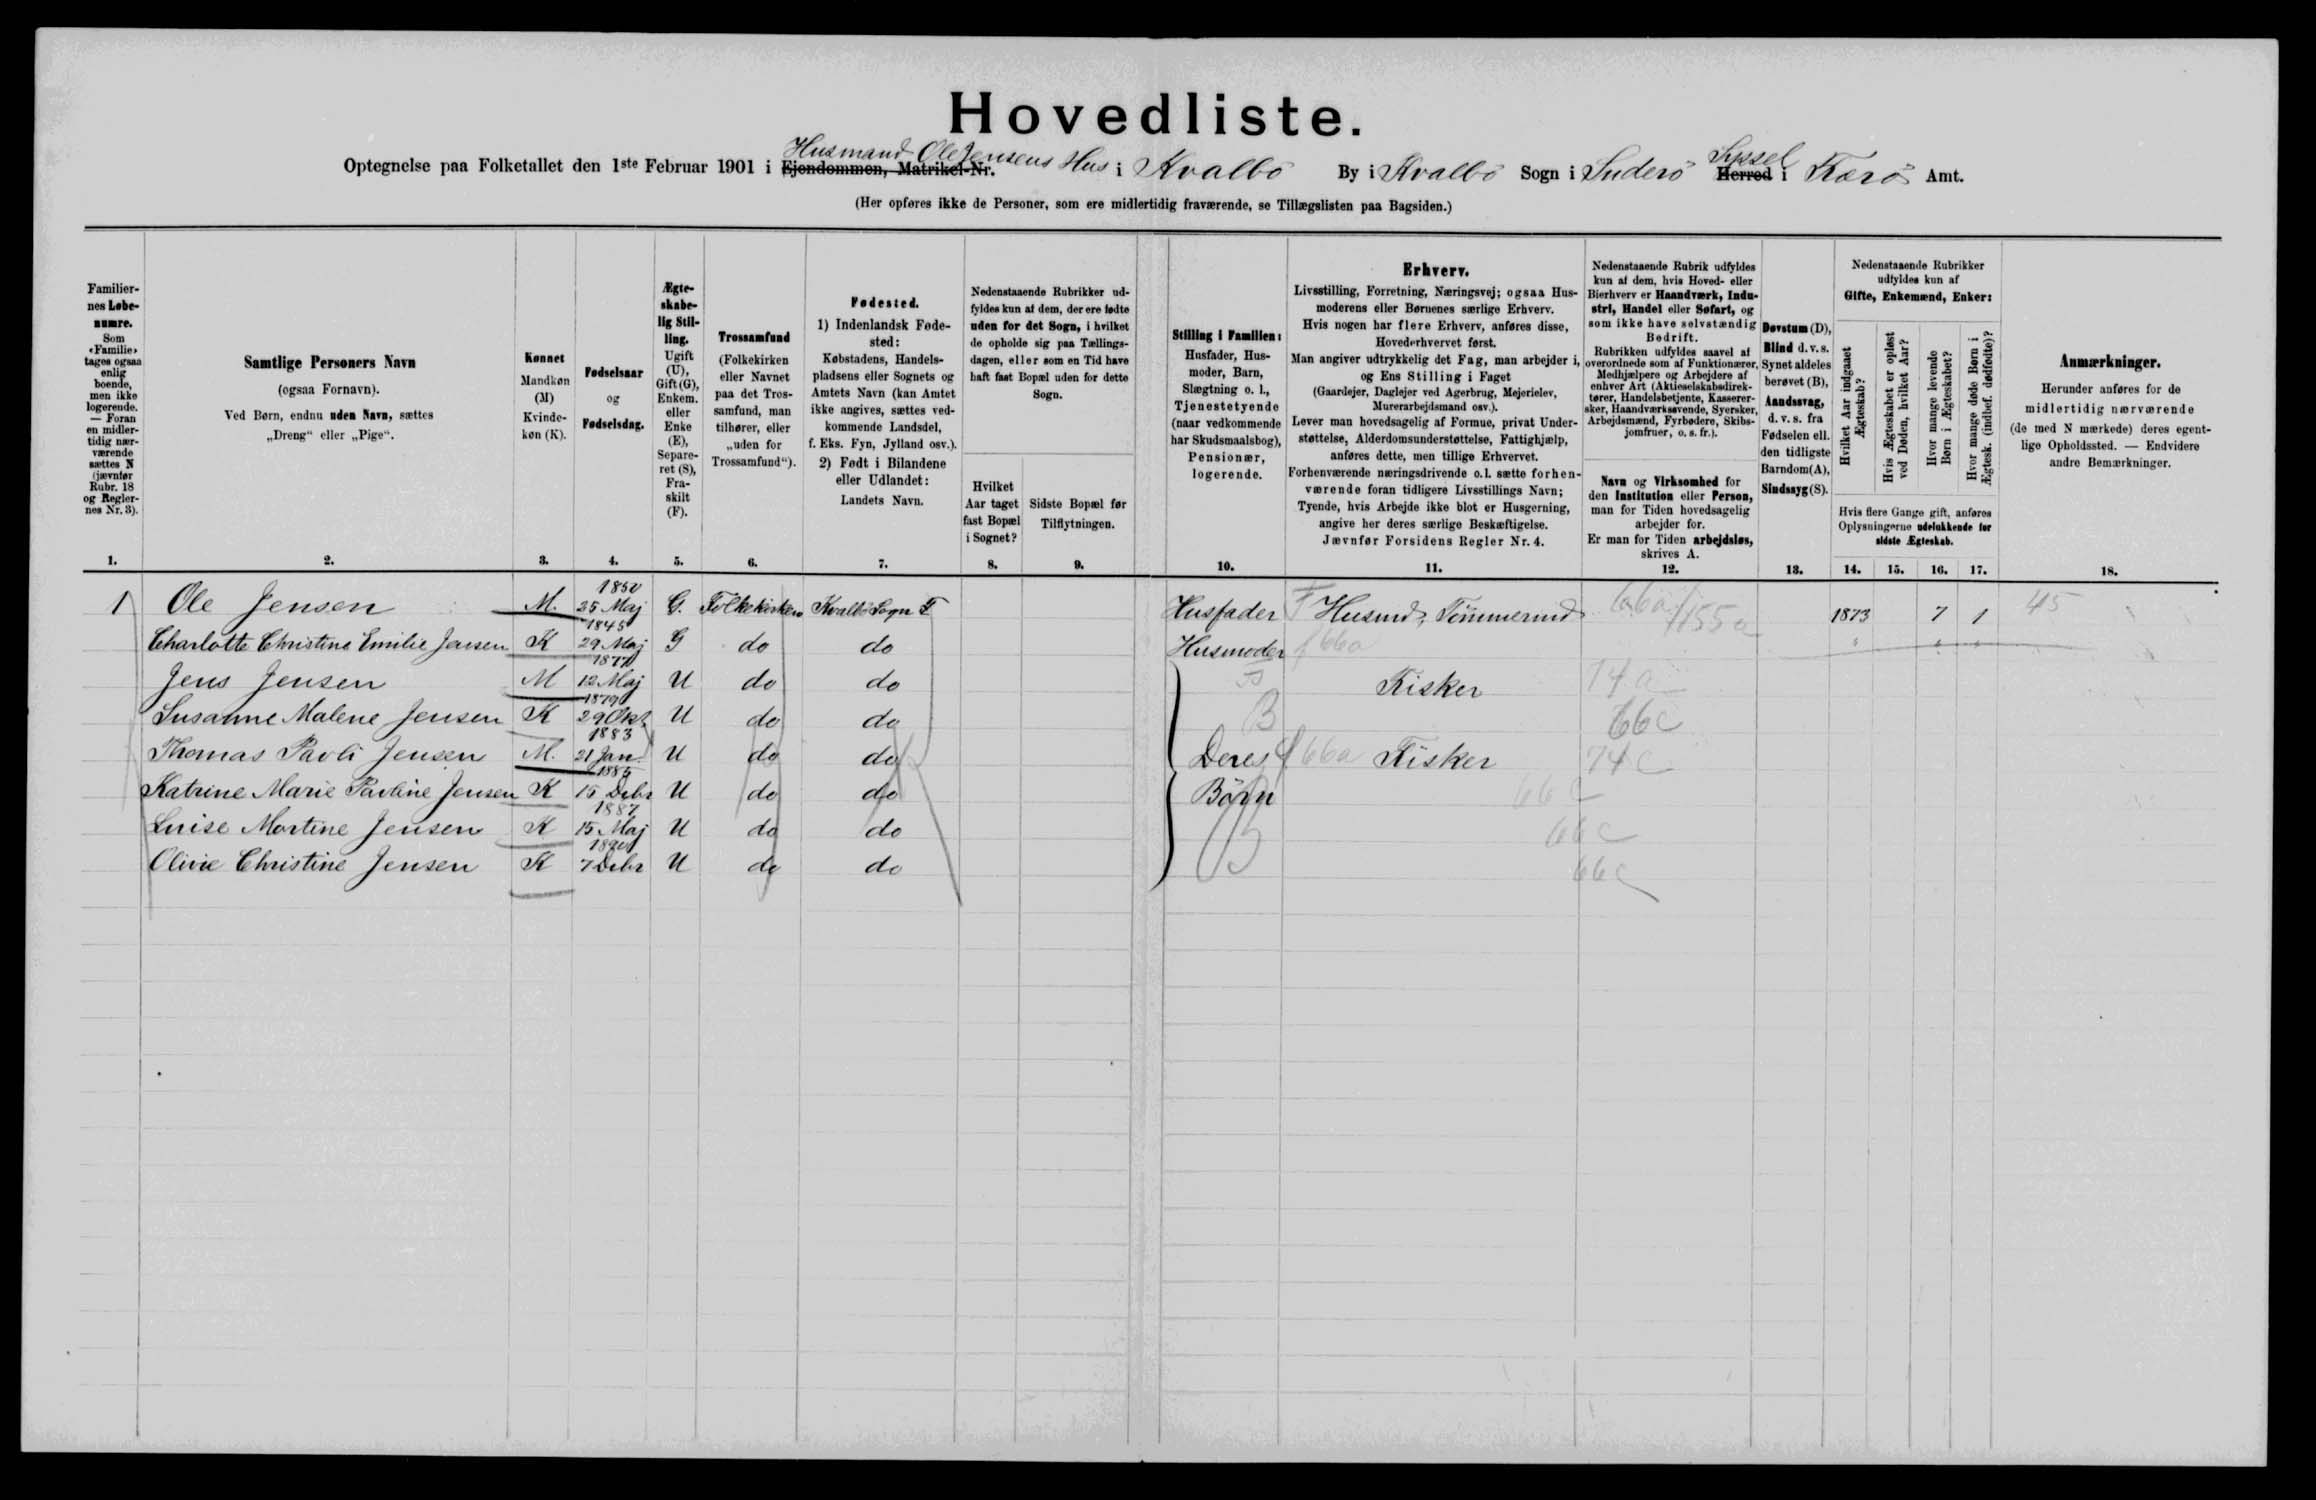 Hovedliste.
Optegnelse paa Folketallet den 1ste Februar 1901 i Ejendommen, Matrikel-Nr. Husmand Ole Jensens Hus i Kvalbö By i Kvalbö Sogn i Suderö Herred Syssel i Færö Amt.
(Her opføres ikke de Personer, som ere midlertidig fraværende, se Tillægslisten paa Bagsiden.)
Familier-
nes Løbe-
numre.
Som
«Familie»
tages ogsaa
enlig
boende,
men ikke
logerende.
— Foran
en midler-
tidig nær-
værende
sættes N
(jævnfør
Rubr. 18
og Regler-
nes Nr. 3).
1.
Samtlige Personers Navn
(ogsaa Fornavn).
Ved Børn, endnu uden Navn, sættes
„Dreng“ eller „Pige“.
2.
Kønnet
Mandkøn
(M)
Kvinde-
køn (K).
3.
Fødselsaar
og
Fødselsdag.
4.
Ægte-
skabe-
lig Stil-
ling.
Ugift
(U),
Gift (G),
Enkem.
eller
Enke
(E),
Separe-
ret (S),
Fra-
skilt
(F).
5.
Trossamfund
(Folkekirken
eller Navnet
paa det Tros-
samfund, man
tilhører, eller
„uden for
Trossamfund“).
6.
Fødested.
1) Indenlandsk Føde-
sted:
Købstadens, Handels-
pladsens eller Sognets og
Amtets Navn (kan Amtet
ikke angives, sættes ved-
kommende Landsdel,
f. Eks. Fyn, Jylland osv.).
2) Født i Bilandene
eller Udlandet:
Landets Navn.
7.
Nedenstaaende Rubrikker ud-
fyldes kun af dem, der ere fødte
uden for det Sogn, i hvilket
de opholde sig paa Tællings-
dagen, eller som en Tid have
haft fast Bopæl uden for dette
Sogn.
Hvilket
Aar taget
fast Bopæl
i Sognet?
8.
Sidste Bopæl før
Tilflytningen.
9.
Stilling i Familien:
Husfader, Hus-
moder, Barn,
Slægtning o. l.,
Tjenestetyende
(naar vedkommende
har Skudsmaalsbog),
Pensionær,
logerende.
10.
Erhverv.
Livsstilling, Forretning, Næringsvej; ogsaa Hus-
moderens eller Børnenes særlige Erhverv.
Hvis nogen har flere Erhverv, anføres disse,
Hovederhvervet først.
Man angiver udtrykkelig det Fag, man arbejder i,
og Ens Stilling i Faget
(Gaardejer, Daglejer ved Agerbrug, Mejerielev,
Murerarbejdsmand osv.).
Lever man hovedsagelig af Formue, privat Under-
støttelse, Alderdomsunderstøttelse, Fattighjælp,
anføres dette, men tillige Erhvervet.
Forhenværende næringsdrivende o.l. sætte forhen-
værende foran tidligere Livsstillings Navn;
Tyende, hvis Arbejde ikke blot er Husgerning,
angive her deres særlige Beskæftigelse.
Jævnfør Forsidens Regler Nr. 4.
11.
Nedenstaaende Rubrik udfyldes
kun af dem, hvis Hoved- eller
Bierhverv er Haandværk, Indu-
stri, Handel eller Søfart, og
som ikke have selvstændig
Bedrift.
Rubrikken udfyldes saavel af
overordnede som af Funktionærer,
Medhjælpere og Arbejdere af
enhver Art (Aktieselskabsdirek-
tører, Handelsbetjente, Kasserer-
sker, Haandværkssvende, Syersker,
Arbejdsmænd, Fyrbødere, Skibs-
jomfruer, o. s. fr.).
Navn og Virksomhed for
den Institution eller Person,
man for Tiden hovedsagelig
arbejder for.
Er man for Tiden arbejdsløs,
skrives A.
12.
Døvstum (D),
Blind d. v. s.
Synet aldeles
berøvet (B),
Aandssvag,
d. v. s. fra
Fødselen ell.
den tidligste
Barndom (A),
Sindssyg (S).
13.
Nedenstaaende Rubrikker
udfyldes kun af
Gifte, Enkemænd, Enker:
Hvilket Aar indgaaet
Ægteskab?
Hvis Ægteskabet er opløst
ved Døden, hvilket Aar?
Hvor mange levende
Børn i Ægteskabet?
Hvor mange døde Børn i
Ægtesk. (indbef. dødfødte)?
Hvis flere Gange gift, anføres
Oplysningerne udelukkende for
sidste Ægteskab.
14. 15. 16. 17.
Anmærkninger.
Herunder anføres for de
midlertidig nærværende
(de med N mærkede) deres egent-
lige Opholdssted. — Endvidere
andre Bemærkninger.
18.
1 Ole Jensen M. 1850 25 Maj G. Folkekirken Kvalbö Sogn F Husfader F Husmd, Tömmermd 66a 155a 1873 7 1 45
Charlotte Christine Emilie Jensen K 1845 29 Maj G do do Husmoder f 66a " " "
Jens Jensen M 1877 12 Maj U do do Fisker 74a
Susanne Malene Jensen K 1879 29 Okt. U do do B 66c
Thomas Pavli Jensen M. 1883 21 Jan. U do do Deres f 66a Fisker 74c
Katrine Marie Pavline Jensen K 1885 15 Debr U do do Börn 66c
Luise Martine Jensen K 1887 15 Maj U do do B 66c
Olivie Christine Jensen K 1890 7 Debr U do do 66c